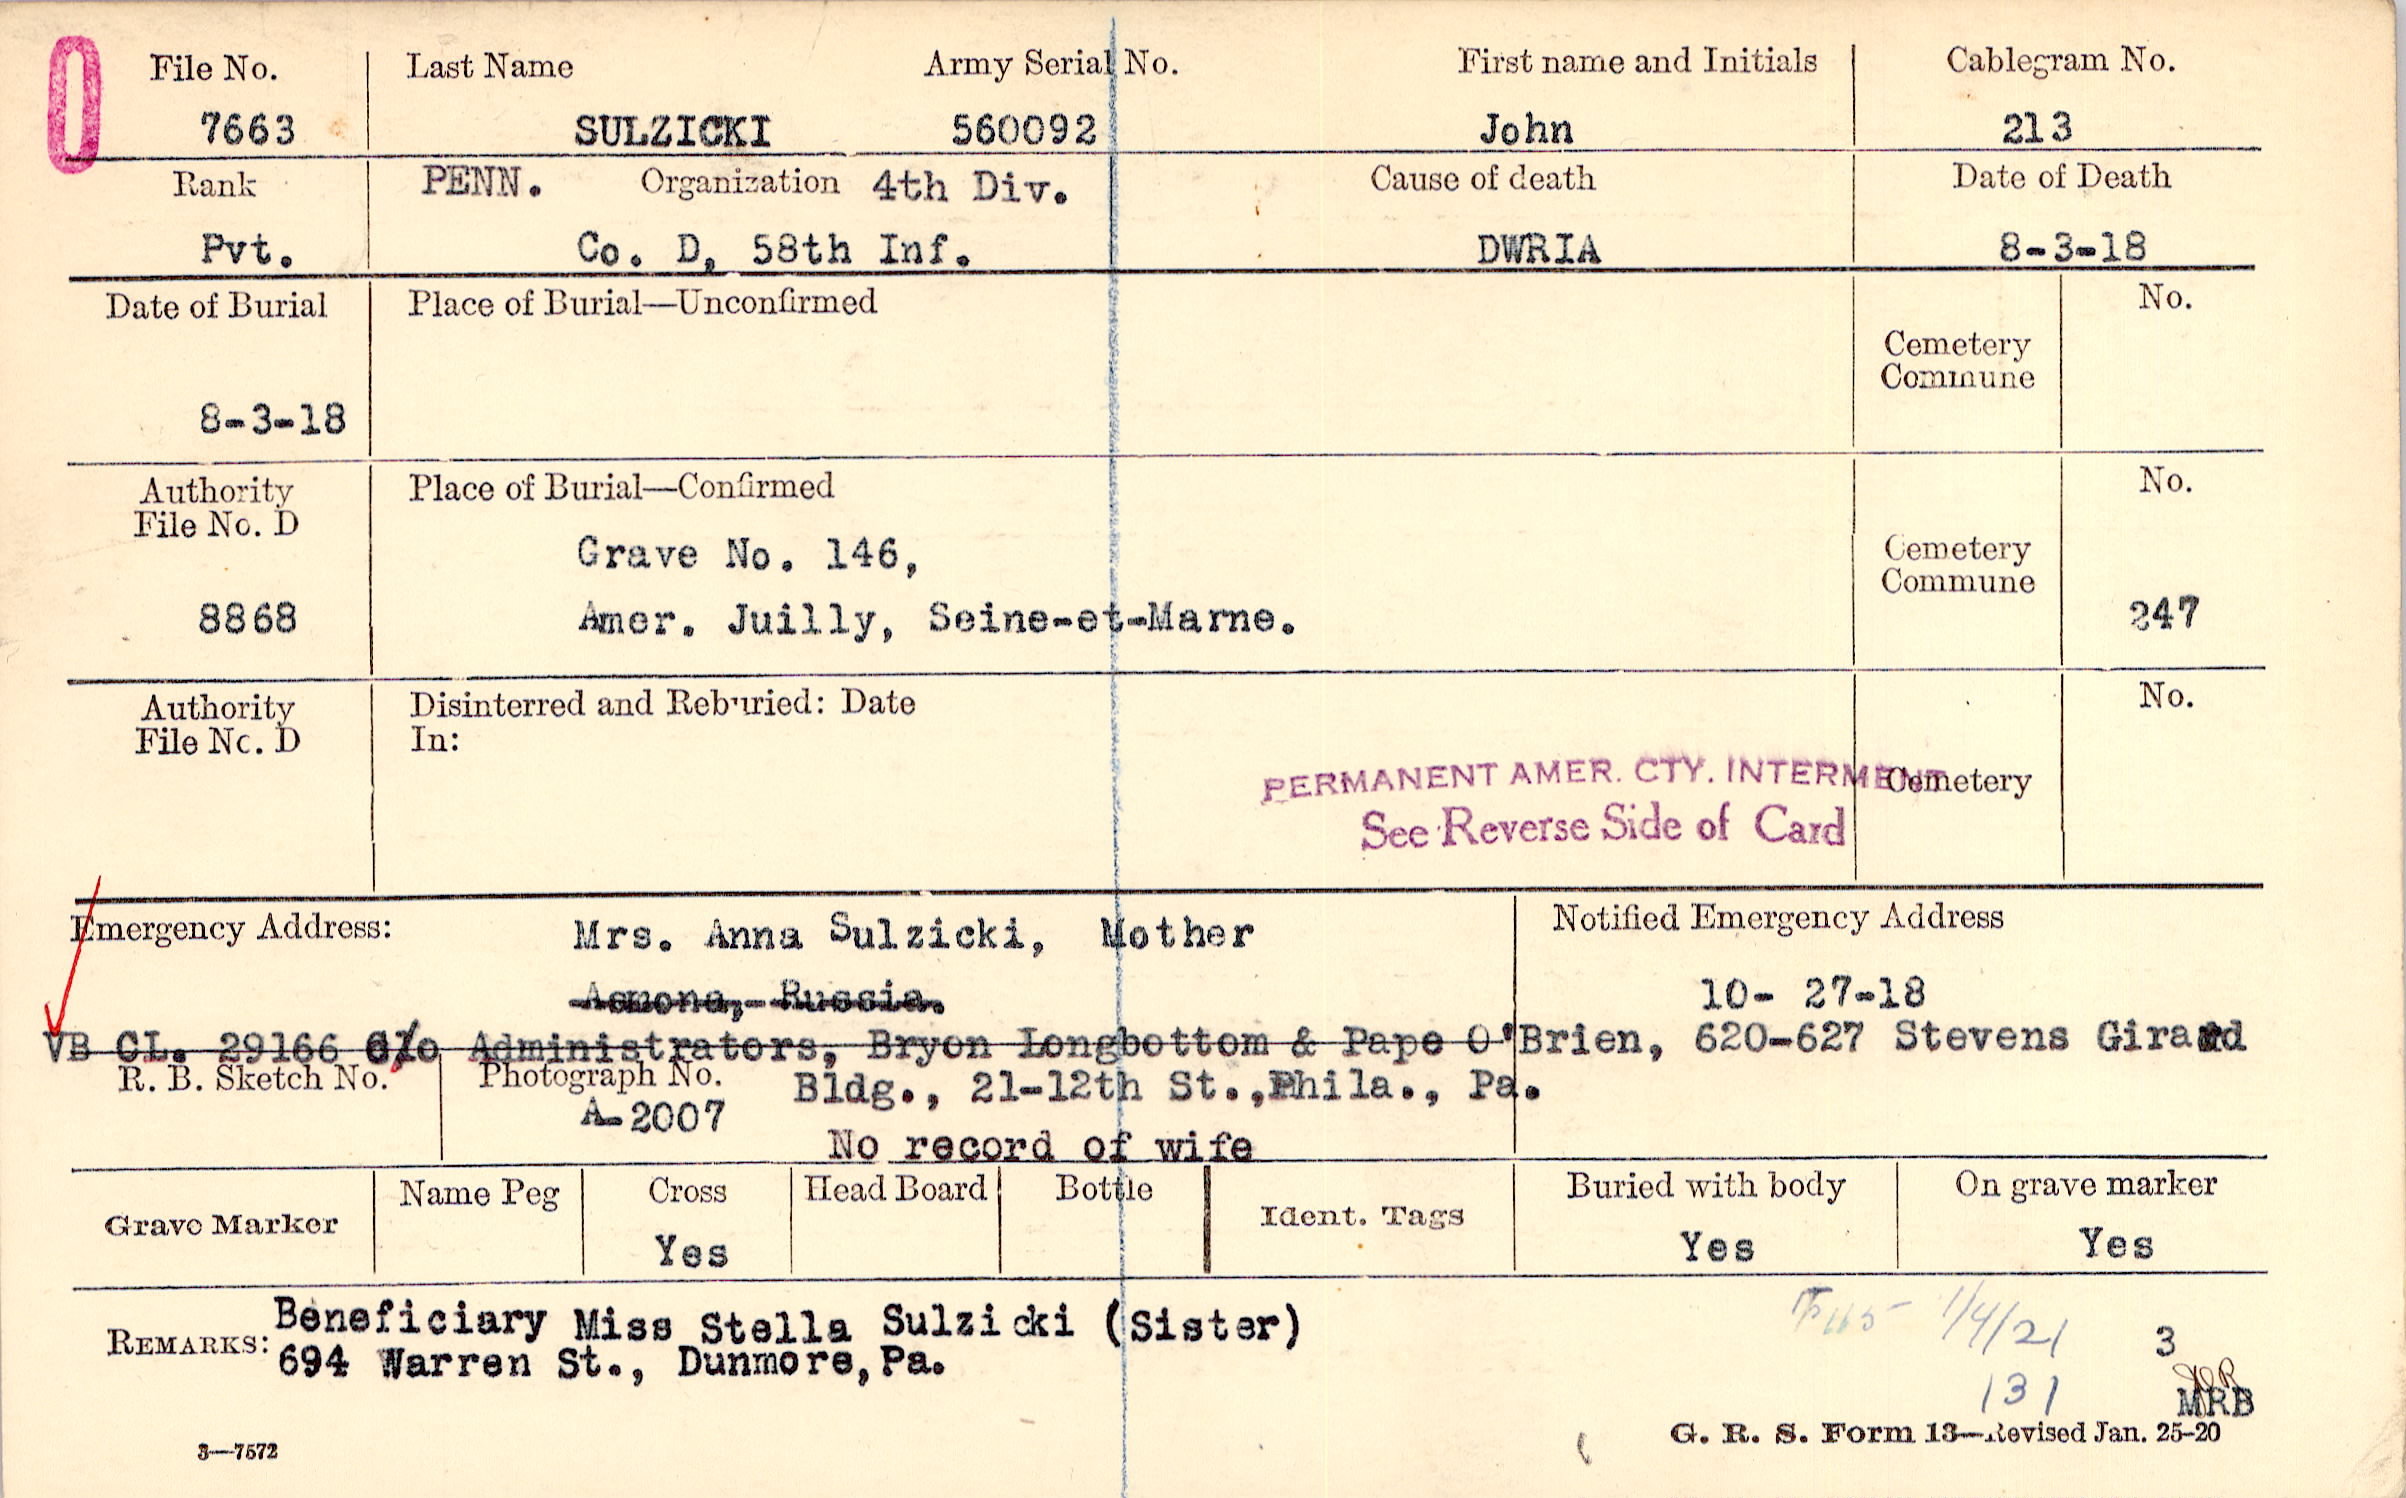 0
File No. Last Name Army Serial No. First name and Initials Cablegram No.
7663 SULZICKI 560092 John 213
Rank PENN. Organization 4th Div. Cause of death Date of Death
Pvt. Co. D, 58th Inf. DWRIA 8-3-18
Date of Burial Place of Burial—Unconfirmed No.
Cemetery
Commune
8-3-18
Authority Place of Burial—Confirmed No.
File No. D
Grave No. 146, Cemetery
Commune
8868 Amer. Juilly, Seine-et-Marne. 247
Authority Disinterred and Reburied: Date No.
File No. D In:
PERMANENT AMER. CTY. INTERMENT Cemetery
See Reverse Side of Card
Emergency Address: Mrs. Anna Sulzicki, Mother Notified Emergency Address
Asmona, Russia. 10- 27-18
VB CL. 29166 C/o Administrators, Bryon Longbottom & Pape O'Brien, 620-627 Stevens Girard
R. B. Sketch No. Photograph No. Bldg., 21-12th St.,Phila., Pa.
A-2007
No record of wife
Grave Marker Name Peg Cross Head Board Bottle Ident. Tags Buried with body On grave marker
Yes Yes Yes
REMARKS: Beneficiary Miss Stella Sulzicki (Sister)
694 Warren St., Dunmore,Pa.
1/4/21 3
131 MRB
3—7572 G. R. S. Form 13—Revised Jan. 25-20